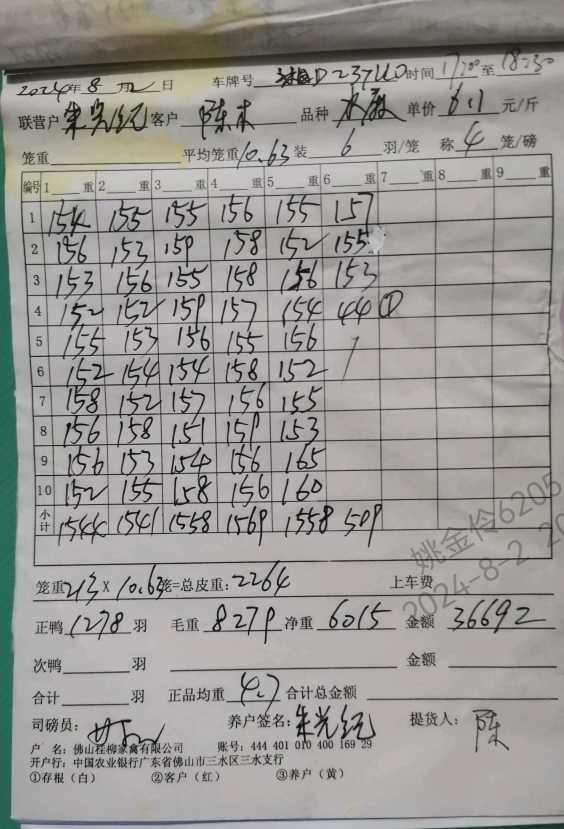 2024年8月2日 车牌号 D237U0 时间 17:00 至 18:30
联营户 朱光纪 客户 陈木 品种 单价 6.1 元/斤
笼重 平均笼重 10.63 装 6 羽/笼 称 4 笼/磅
编号 1 重 2 重 3 重 4 重 5 重 6 重 7 重 8 重 9 重
1 154 155 155 156 155 157
2 156 153 159 158 152 155
3 153 156 155 158 156 153
4 152 152 159 157 154 44 ①
5 155 153 156 155 156
6 152 154 154 158 152
7 158 152 157 156 155
8 156 158 151 159 153
9 156 153 154 156 165
10 152 155 158 156 160
小计 1544 1541 1558 1569 1558 509
笼重 213 × 10.63 笼=总皮重: 2264 上车费
正鸭 1278 羽 毛重 8279 净重 6015 金额 36692
次鸭 羽 金额
合计 羽 正品均重 4.7 合计总金额
司磅员: 养户签名: 朱光纪 提货人: 陈
户 名: 佛山桂柳家禽有限公司 账号: 444 401 010 400 169 29
开户行: 中国农业银行广东省佛山市三水区三水支行
①存根(白) ②客户(红) ③养户(黄)
姚金伶6205
2024-8-2 20